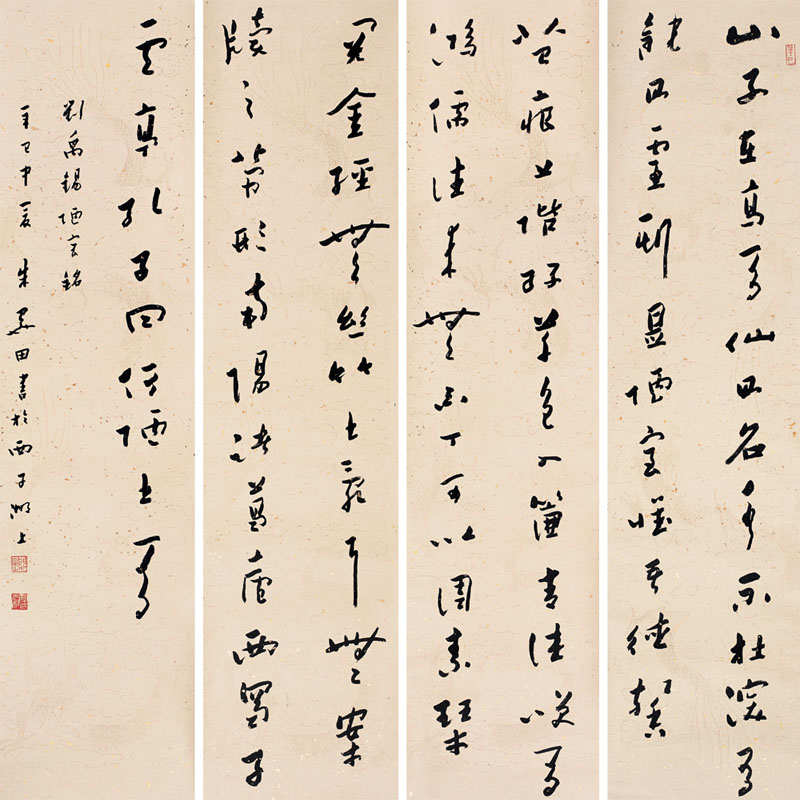 山不在高有仙則名水不在深有
龍則靈斯是陋室惟吾德馨
苔痕上階綠草色入簾青談笑有
鴻儒往来無白丁可以調素琴
閱金經無絲竹之亂耳無案
牘之勞形南陽諸葛廬西蜀子
雲亭孔子曰何陋之有
劉禹錫陋室銘
辛巳中夏朱關田書於西子湖上